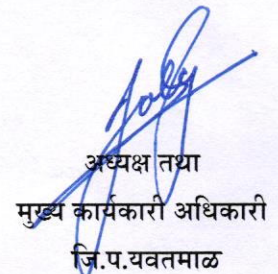 अध्यक्ष तथा
मुख्य कार्यकारी अधिकारी
जि.प.यवतमाळ